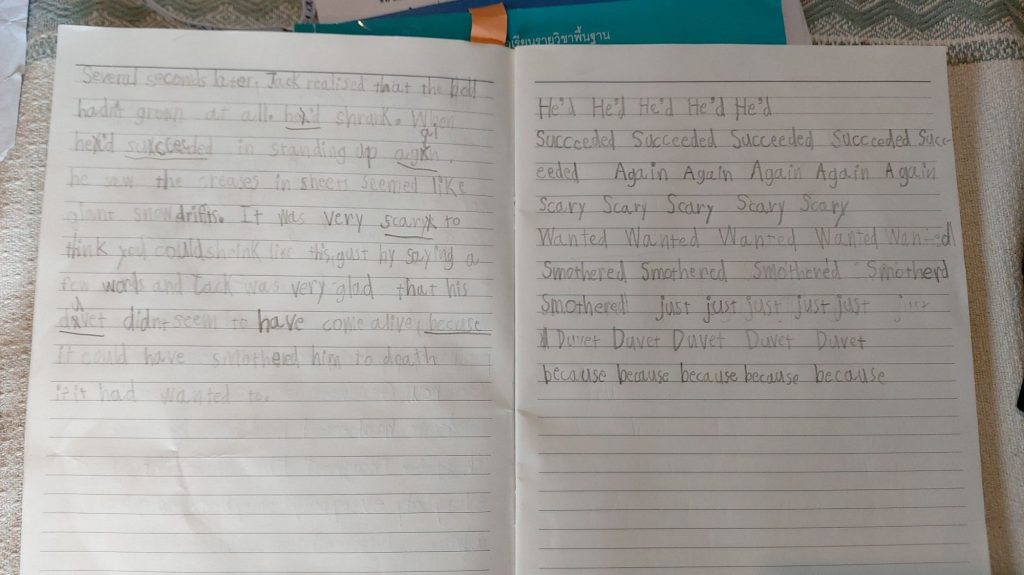 เรียนรายวิชาพื้นฐาน
Several seconds later, Jack realised that the bed
hadn't grown at all. he'd shrank. When
he'd succeeded in standing up again,
he saw the creases in sheets seemed like
giant snowdrifts. It was very scary to
think you could shrink like this, gust by saying a
few words and Jack was very glad that his
duvet didn't seem to have come alive, because
it could have smothered him to death
if it had wanted to.
He'd He'd He'd He'd He'd
Succeeded Succeeded Succeeded Succeeded Succ-
eeded Again Again Again Again Again
Scary Scary Scary Scary Scary
Wanted Wanted Wanted Wanted Wanted
Smothered Smothered Smothered Smotherd
Smothered just just just just just just
Duvet Duvet Duvet Duvet Duvet
because because because because because